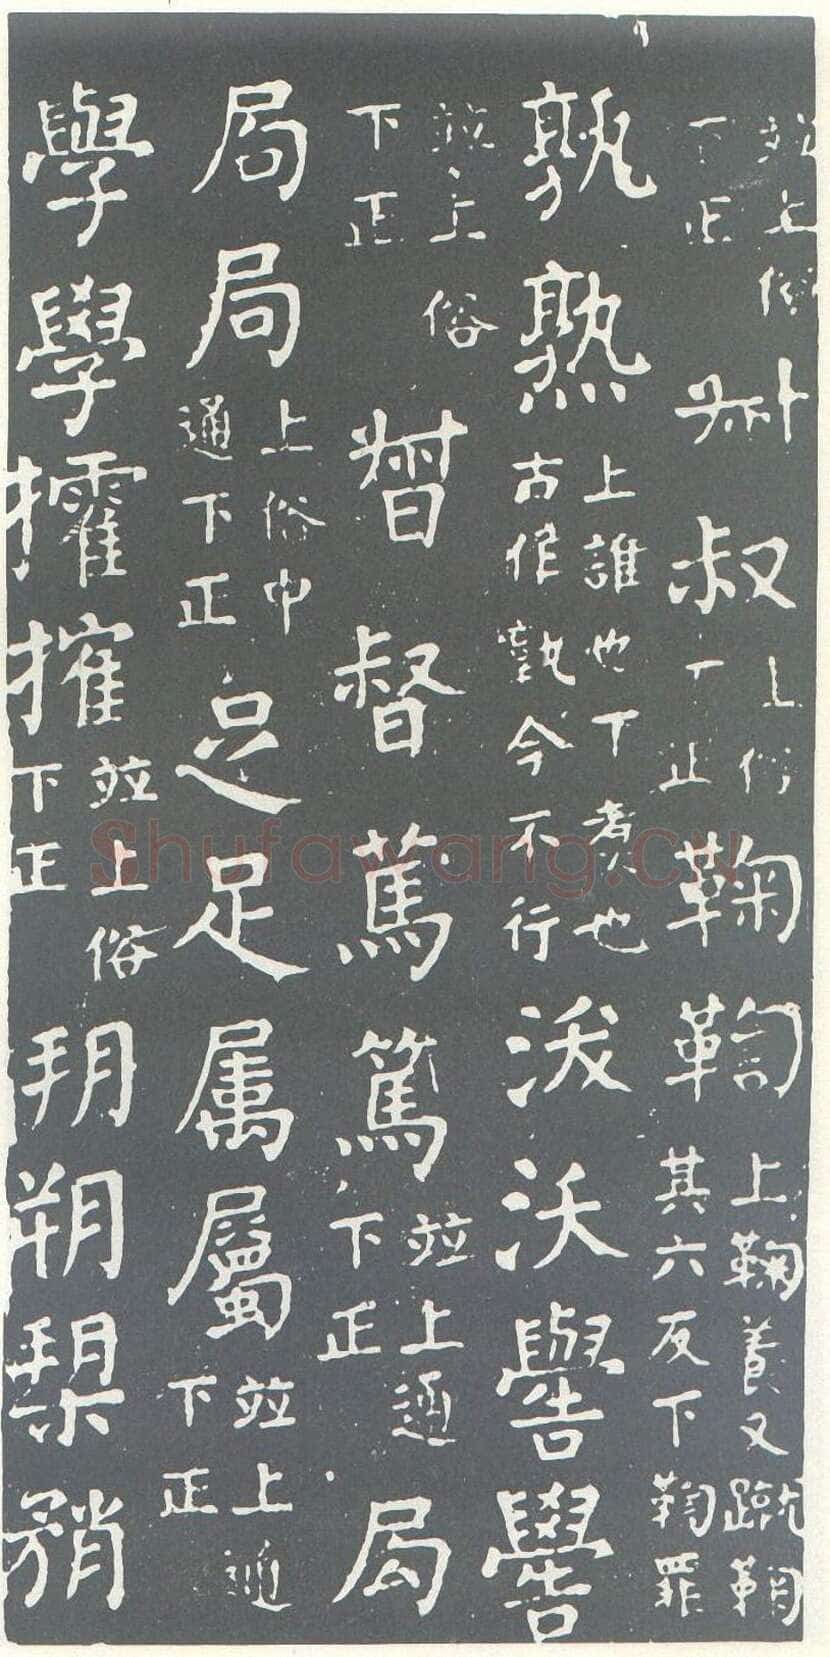 並上俗下正 叔上俗下正 鞠鞫上鞠養又蹴鞠其六反下鞫罪
孰熟上誰也下煮也古作孰今不行 沃 嚳嚳
並上俗下正 督 篤篤並上通下正 局
局局上俗中通下正 足 属屬並上通下正
學學 搉並上俗下正 朔 矟
Shufawang.CN